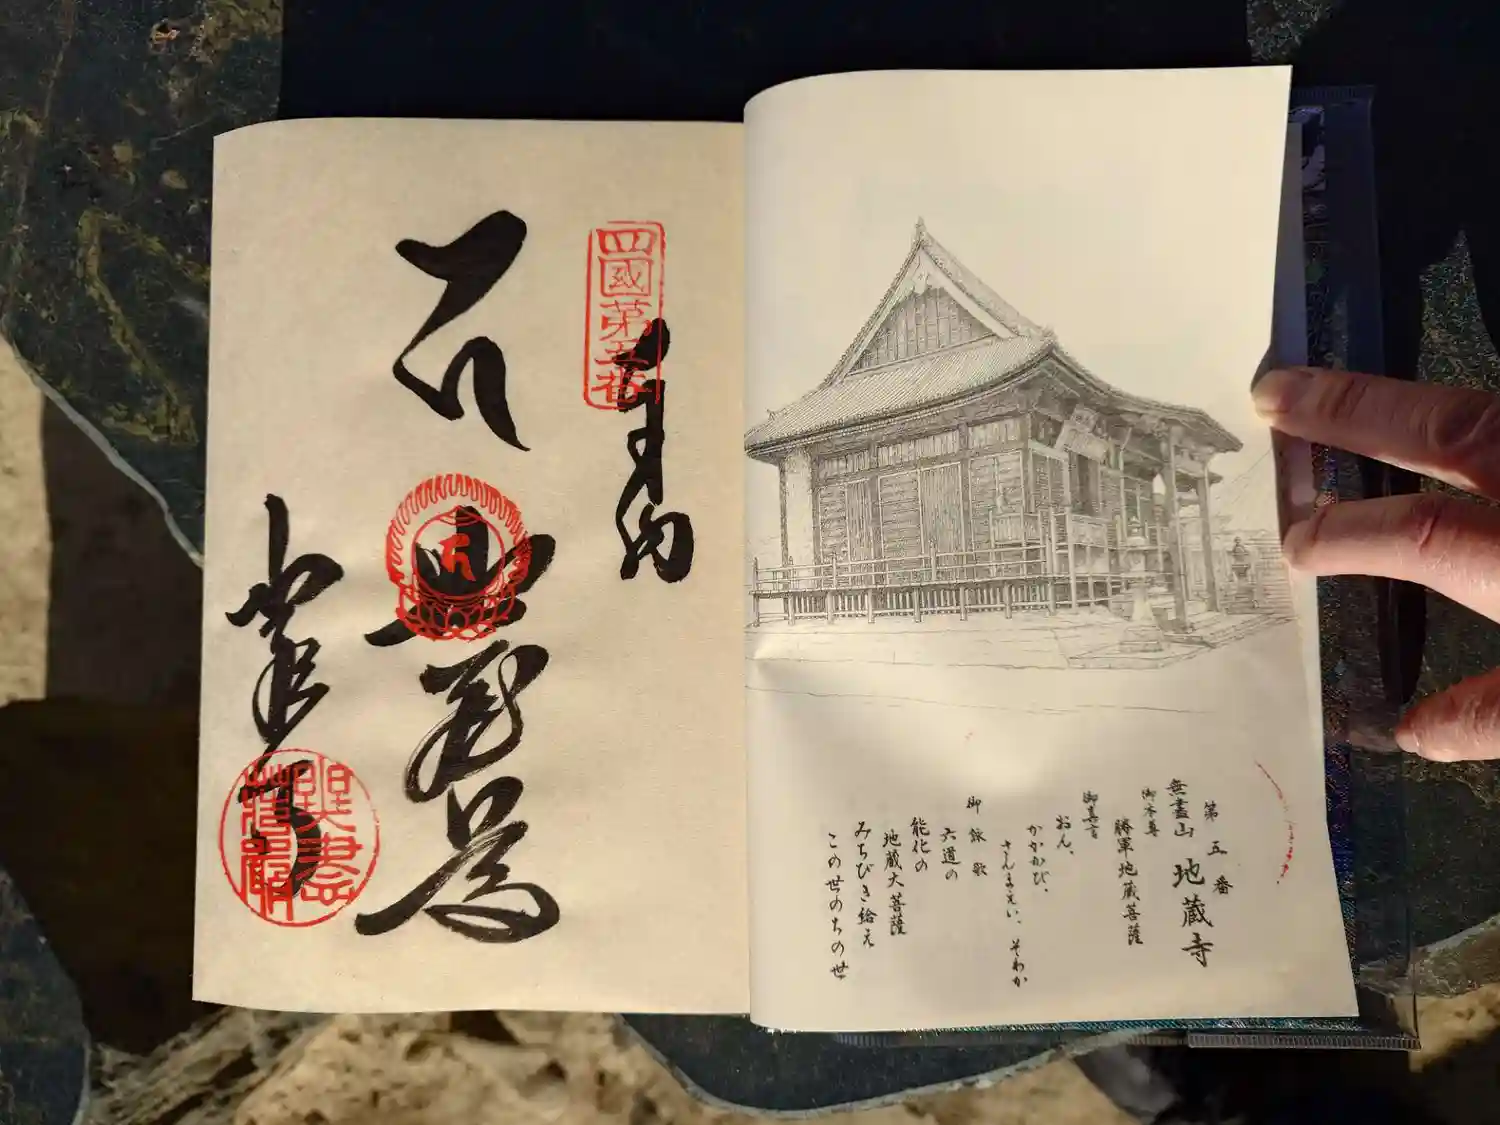 第五番
無盡山 地蔵寺
御本尊
勝軍地蔵菩薩
御真言
おん、
かかかび、
さんまえい、そわか
御詠歌
六道の
能化の
地蔵大菩薩
みちびき給え
この世のちの世
四國第五番
奉納